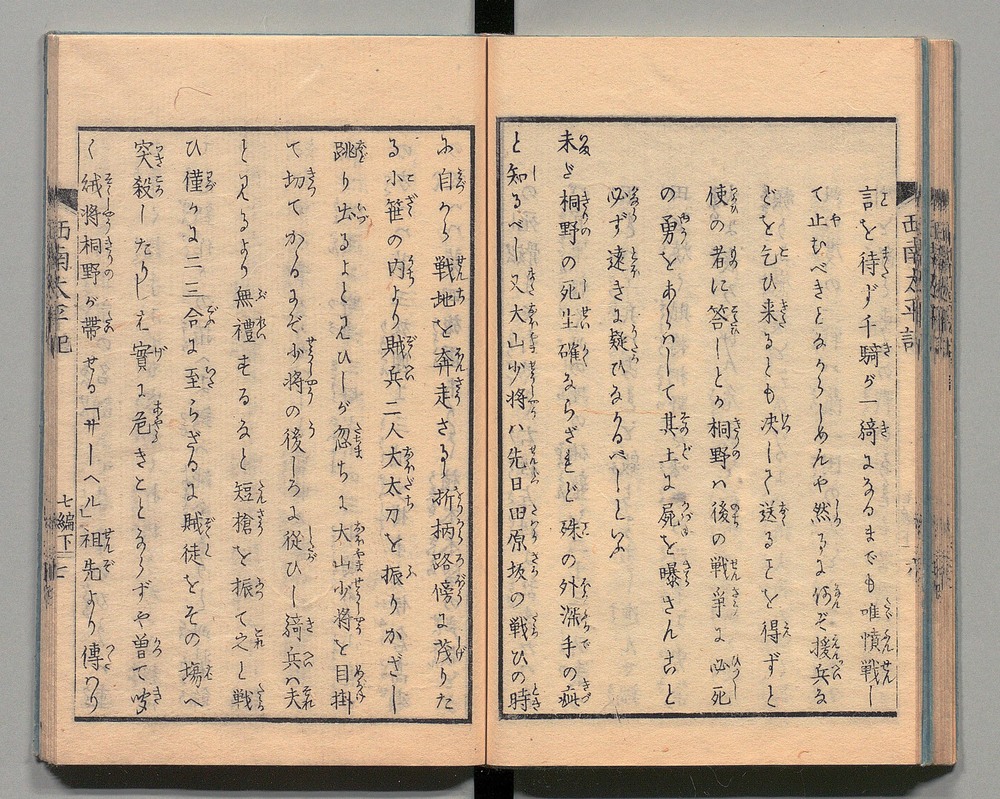 言を待ず千騎が一綺になるまでも唯憤戦し
て止むべきとなからしめんや然るに何ぞ援兵な
どを乞ひ来るとも决して送ることを得ずと
使の若に答しとか桐野ハ後の戦争に必死
の勇をあらハして其土に屍を曝さんこと
必ず遠きに疑ひなかるべしといふ
未ど桐野の死生確ならざれど殊の外深手の疵
と知るべし又大山少将ハ先日田原坂の戦ひの時
西南太平記
み自から戦地を奔走さるし折柄路傍に茂りた
る小笹の内より賊兵二人大太刀を振りかざし
跳り出るよと見ひしが忽ちに大山少将を目掛
て切てかゝるにぞ少将の後しろに従ひし綺兵ハ夫
と見るより無禮もるなと短槍を振て之と戦
ひ僅かに二三合に至らざるに賊徒をその塲へ
突殺したりしハ實に危きことならずや曽て
く賊将桐野が帶せる「サーヘル」祖先より傳ハり
西南太平記
七編下
七